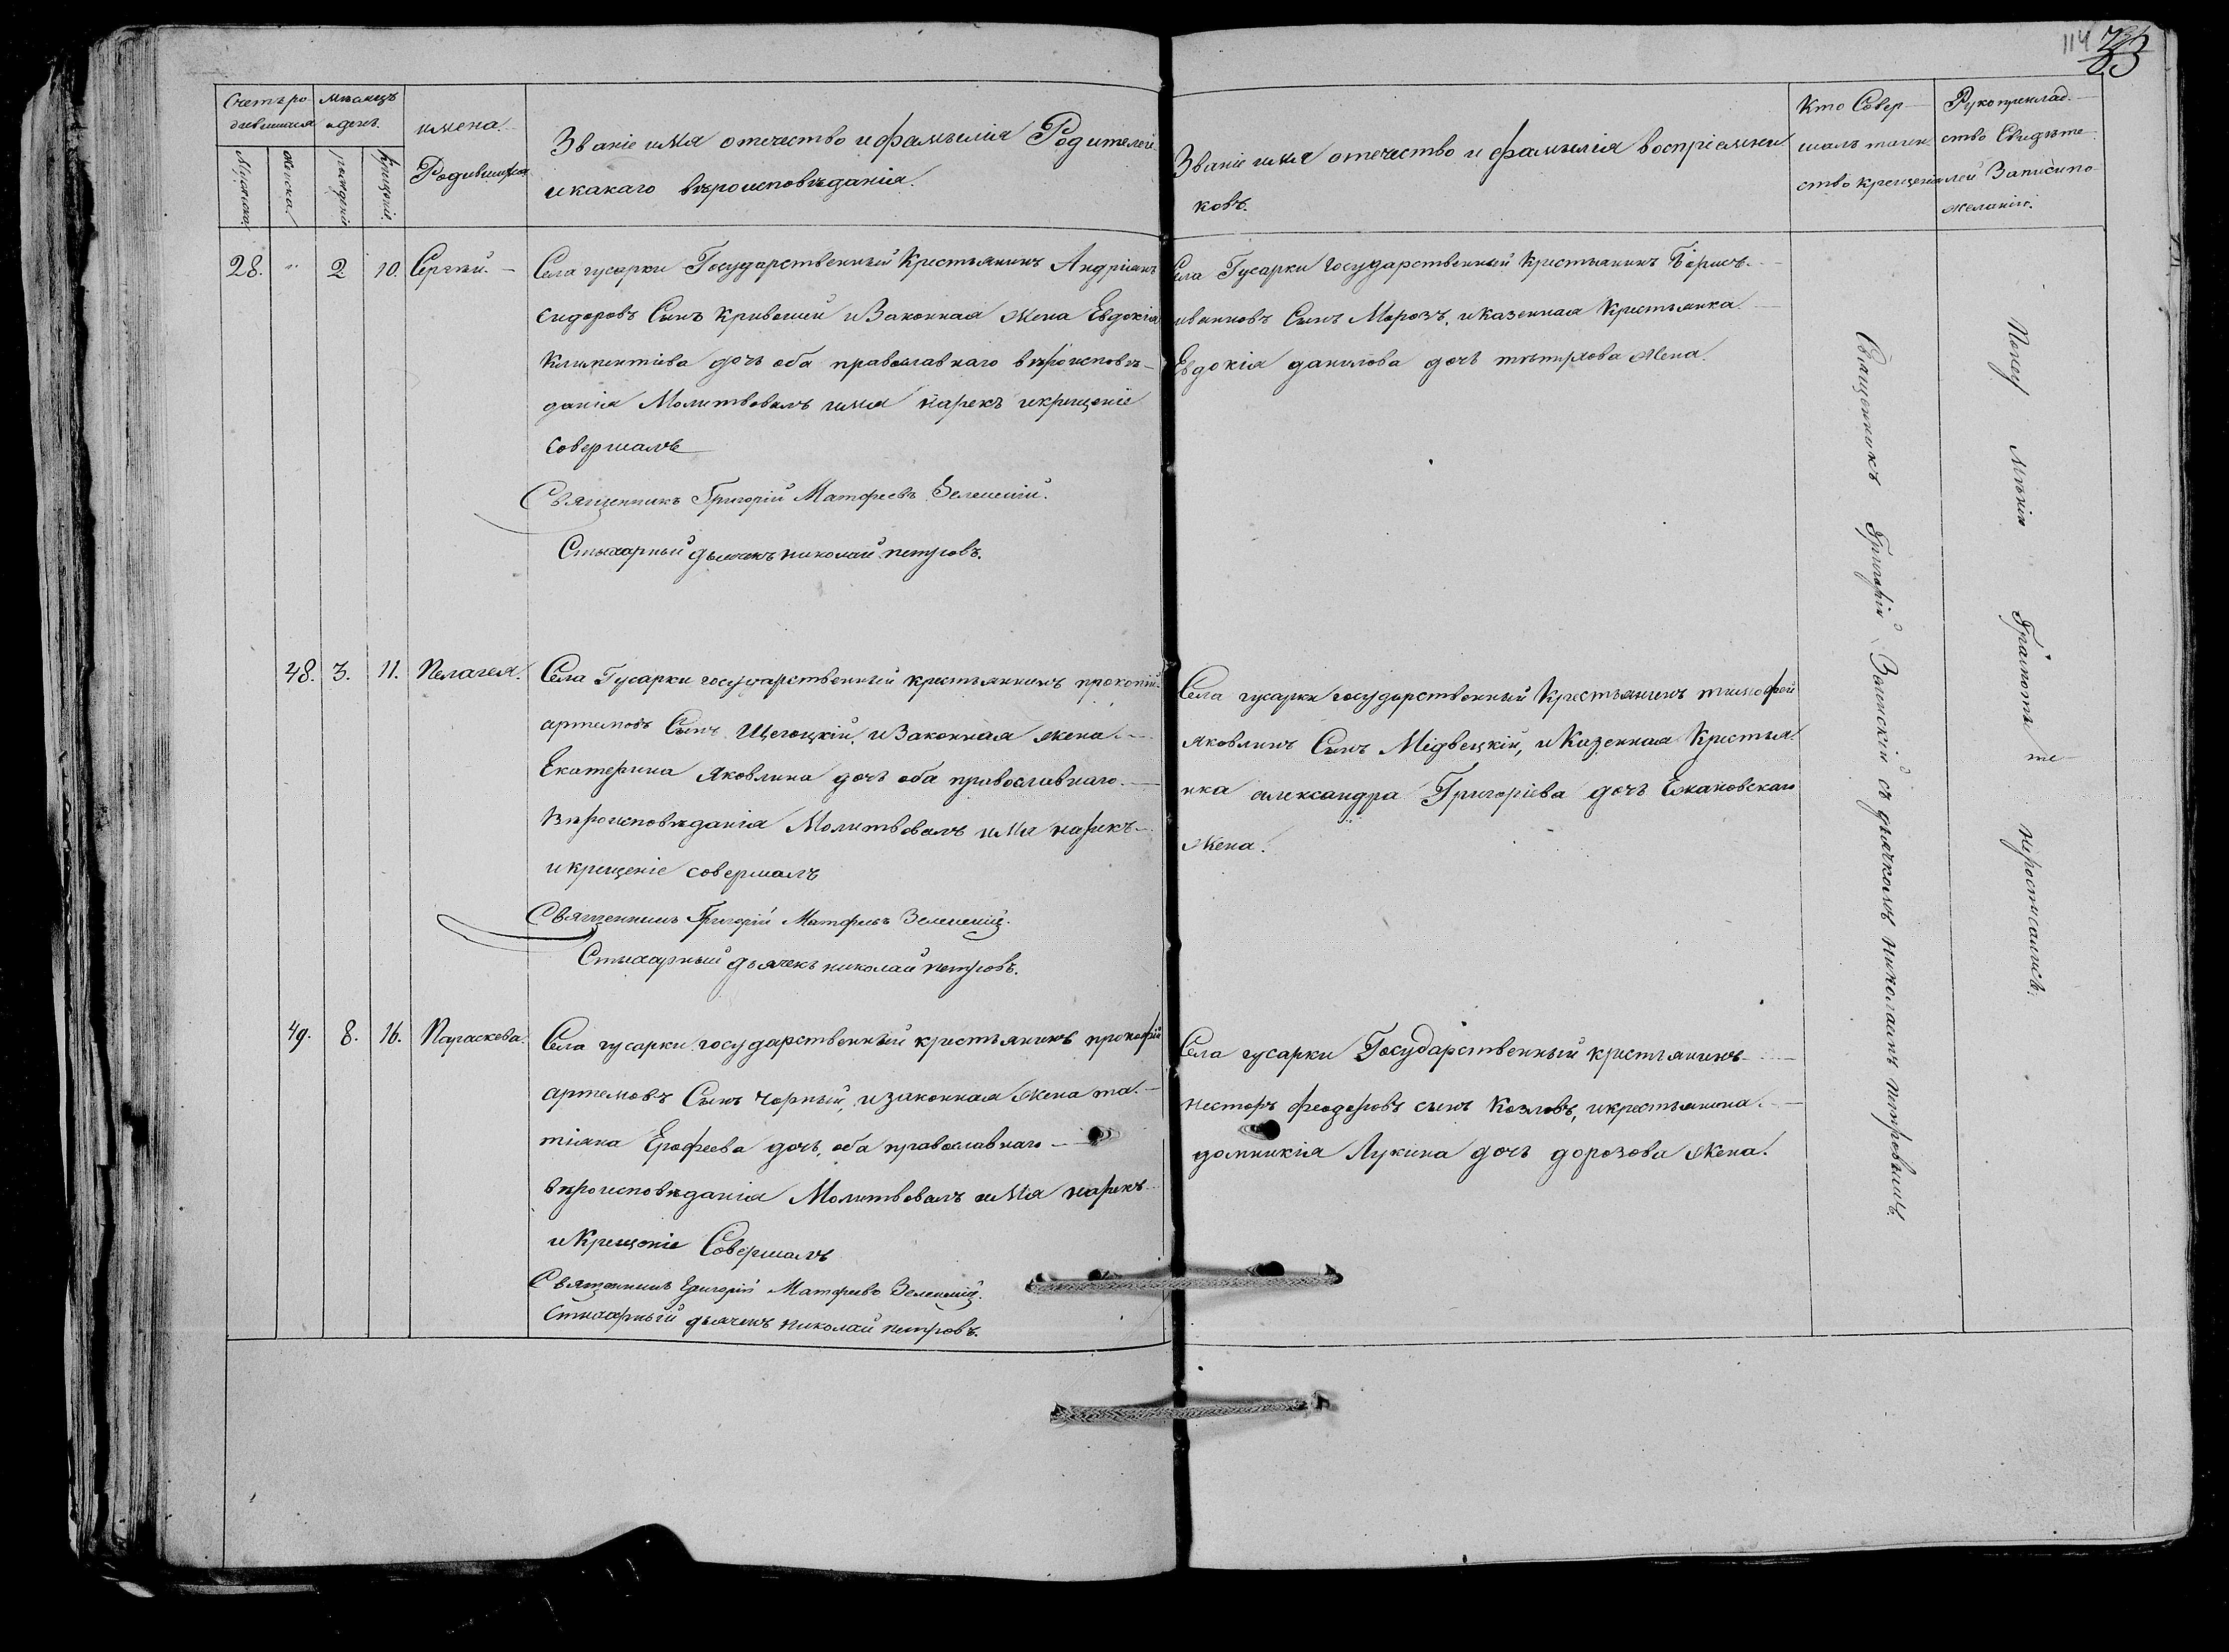 114
33
Счетъ ро
дившихся
Мѣсяцъ
и день.
Мужеска.
Женска.
рожденіе
крещеніе.
имена.
Родившихся
Званіе имя отечество и фамилія Родителей
и какаго вѣроисповѣданія.
Званіе имя отечество и фамилія воспріемни
ковъ.
Кто Совер
шалъ таин
ство крещенія
Рукоприклад
ство Свидѣте
лей Записи по
желанію.
28. " 2 10. Сергѣй. —
Села гусарки Государственный Крестьянинъ Андріянъ
Сидоровъ Сынъ Кривошеи и Законная Жена Евдокія
Климентіева дочь оба православнаго вѣроисповѣ-
данія Молитвовалъ имя нарекъ и крещеніе
Совершалъ
Священникъ Григорій Матфеевъ
Стихарный дьячекъ николай петровъ.
Села Гусарки государственный крестьянинъ Борисъ
ивановъ Сынъ Морозъ, и казенная Крестьянка
Евдокія данилова дочь Жена.
48. 3. 11. Пелагея.
Села Гусарки государственный крестьянинъ прокопій
артемовъ Сынъ Щегоцкій, и Законная жена
Екатерина Яковлина дочь оба православнаго
Вѣроисповѣданія Молитвовалъ имя нарекъ
и крещеніе совершалъ
Священникъ Григорій Матфеевъ
Стихарный дьячекъ николай петровъ.
Села гусарки государственный Крестьянинъ тимофей
яковлинъ Сынъ Мідвецкій, и Казенная Крестья
нка александра Григоріева дочь Ежановскаго
Жена.
49. 8. 16. Параскева.
Села гусарки государственный крестьянинъ прокофій
артемовъ Сынъ Чорный, и законная Жена та
тіяна Ерофеева дочь, оба православнаго
вѣроисповѣданія Молитвовалъ имя нарекъ
и Крещеніе Совершалъ
Священникъ Григорій Матфеевъ
Стихарный дьячекъ николай петровъ.
Села гусарки Государственный крестьянинъ
несторъ феодоровъ сынъ Козловъ, и крестьянка
домникія Лукина дочь дорозова Жена.
Священникъ Григорій съ дьячкомъ николаемъ петровымъ.
Понеу Мѣнію Грамотѣ не росписались.